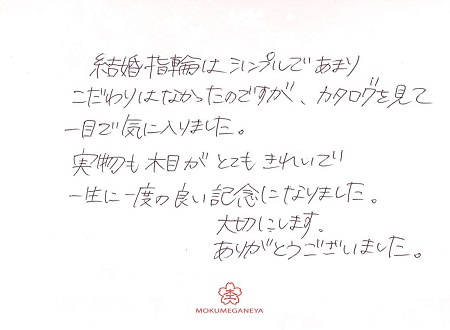 結婚指輪はシンプルであまり
こだわりはなかったのですが、カタログを見て
一目で気に入りました。
実物も木目がとてもきれいで
一生に一度の良い記念になりました。
大切にします。
ありがとうございました。
MOKUMEGANEYA